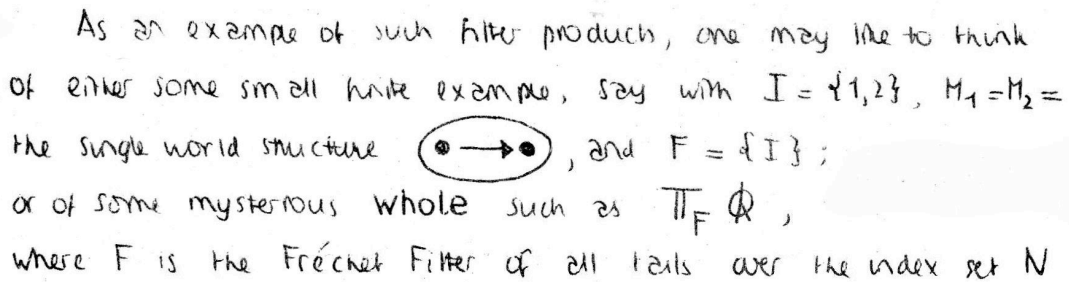 As an example of such filter products, one may like to think
of either some small finite example, say with I = {1,2}, M₁ = M₂ =
the single world structure (• → •), and F = {I};
or of some mysterious whole such as Π_F ℚ,
where F is the Fréchet Filter of all tails over the index set N